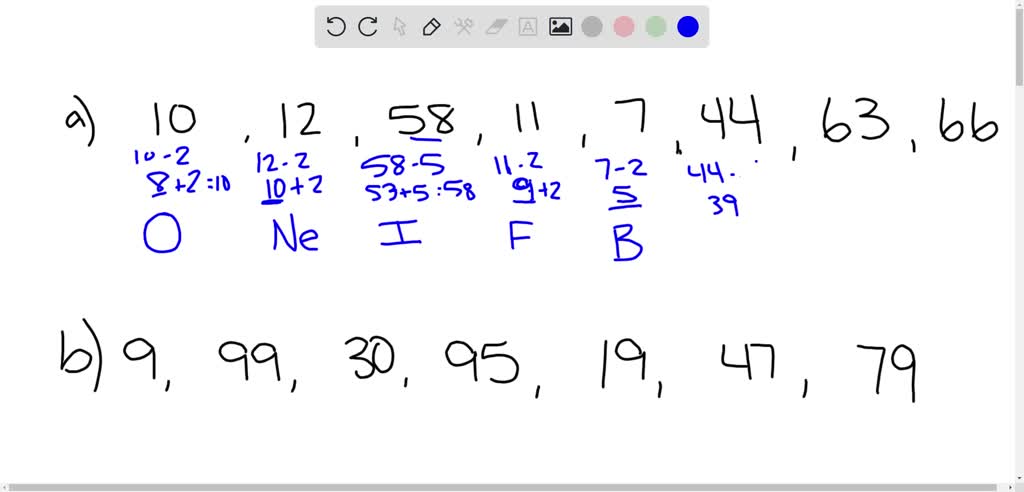 a) 10 , 12 , 58 , 11 , 7 , 44 , 63 , 66
10-2 12-2 58-5 11-2 7-2 44-
8+2=10 10+2 53+5=58 9+2 5 39
O Ne I F B
b) 9, 99, 30, 95, 19, 47, 79